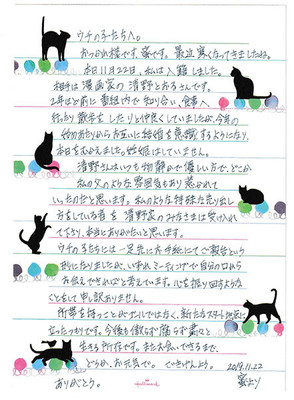 ウチの子たちへ。
おつかれ様です、蜜です。最近寒くなってきましたね。
本日11月22日、私は入籍しました。
相手は漫画家の清野とおるさんです。
2年ほど前に番組内で知り合い、食事へ
行ったり散歩をしたりと仲良くしていましたが、今年の
始めあたりからお互いに結婚を意識するようになり、
本日をむかえました。妊娠はしていません。
清野さんはいつも物静かで優しい方で、どこか
私の父のような雰囲気もあり惹かれて
いったのだと思います。私のような特殊な売り出し
方をしている者を清野家の方々は受け入れ
て下り、本当にありがたいと思います。
ウチの子たちには一足先にお手紙にてご報告という
形になりましたが、いずれミーティングで自分の口から
お伝えできればと考えています。心を振り回すような
ことをして申し訳ありません。
所帯を持つことがゴールではなく、新たなスタート地点に
立ったつもりです。今後も散らず腐らず粛々と
生きる所存です。また会いできるまで、
どうか、お元気で。ごきげんよう。
2019.11.22
ありがとう。
Hallmark
蜜より